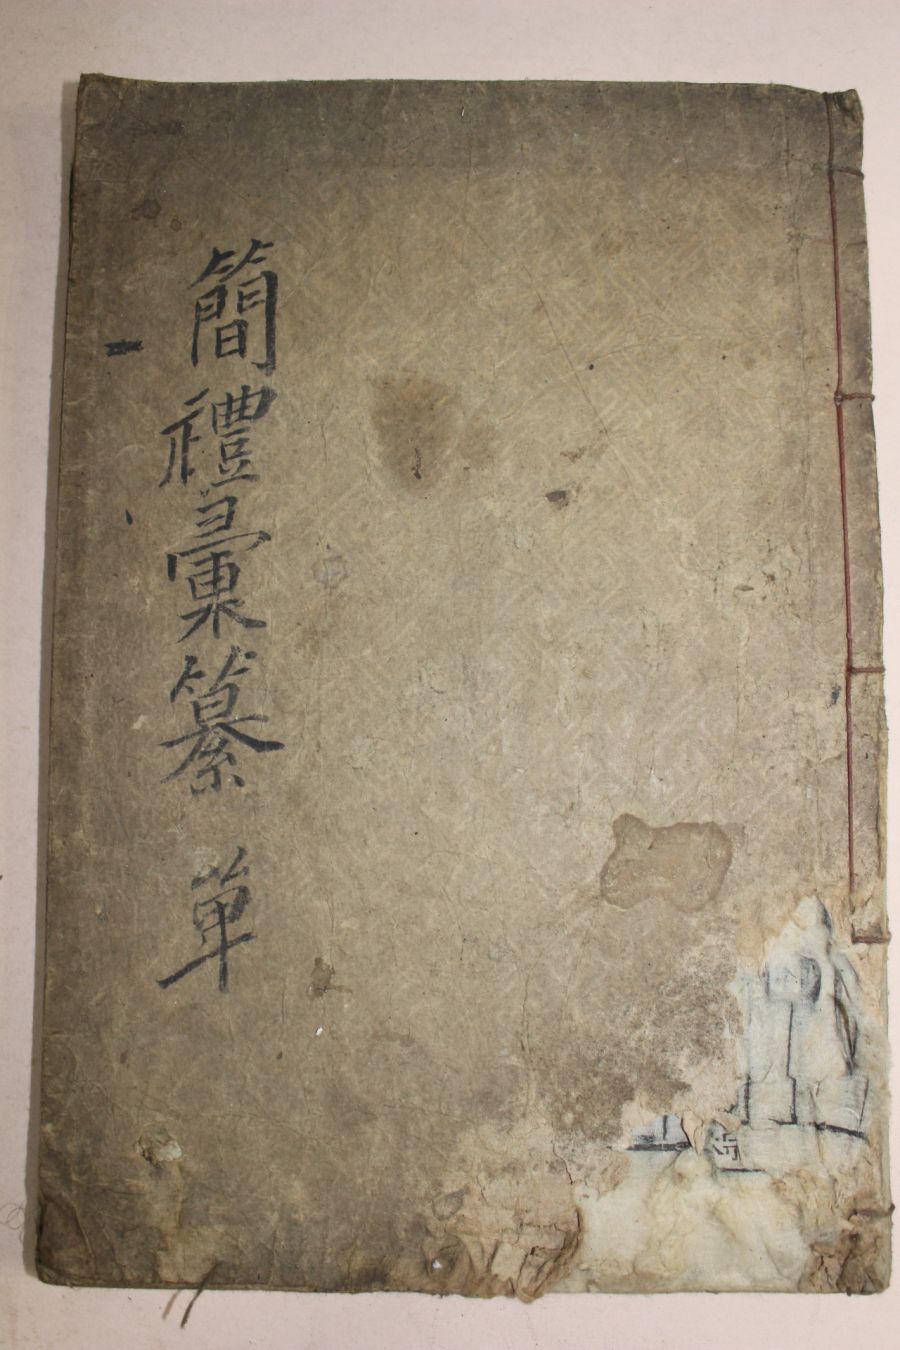 簡禮彙纂 單